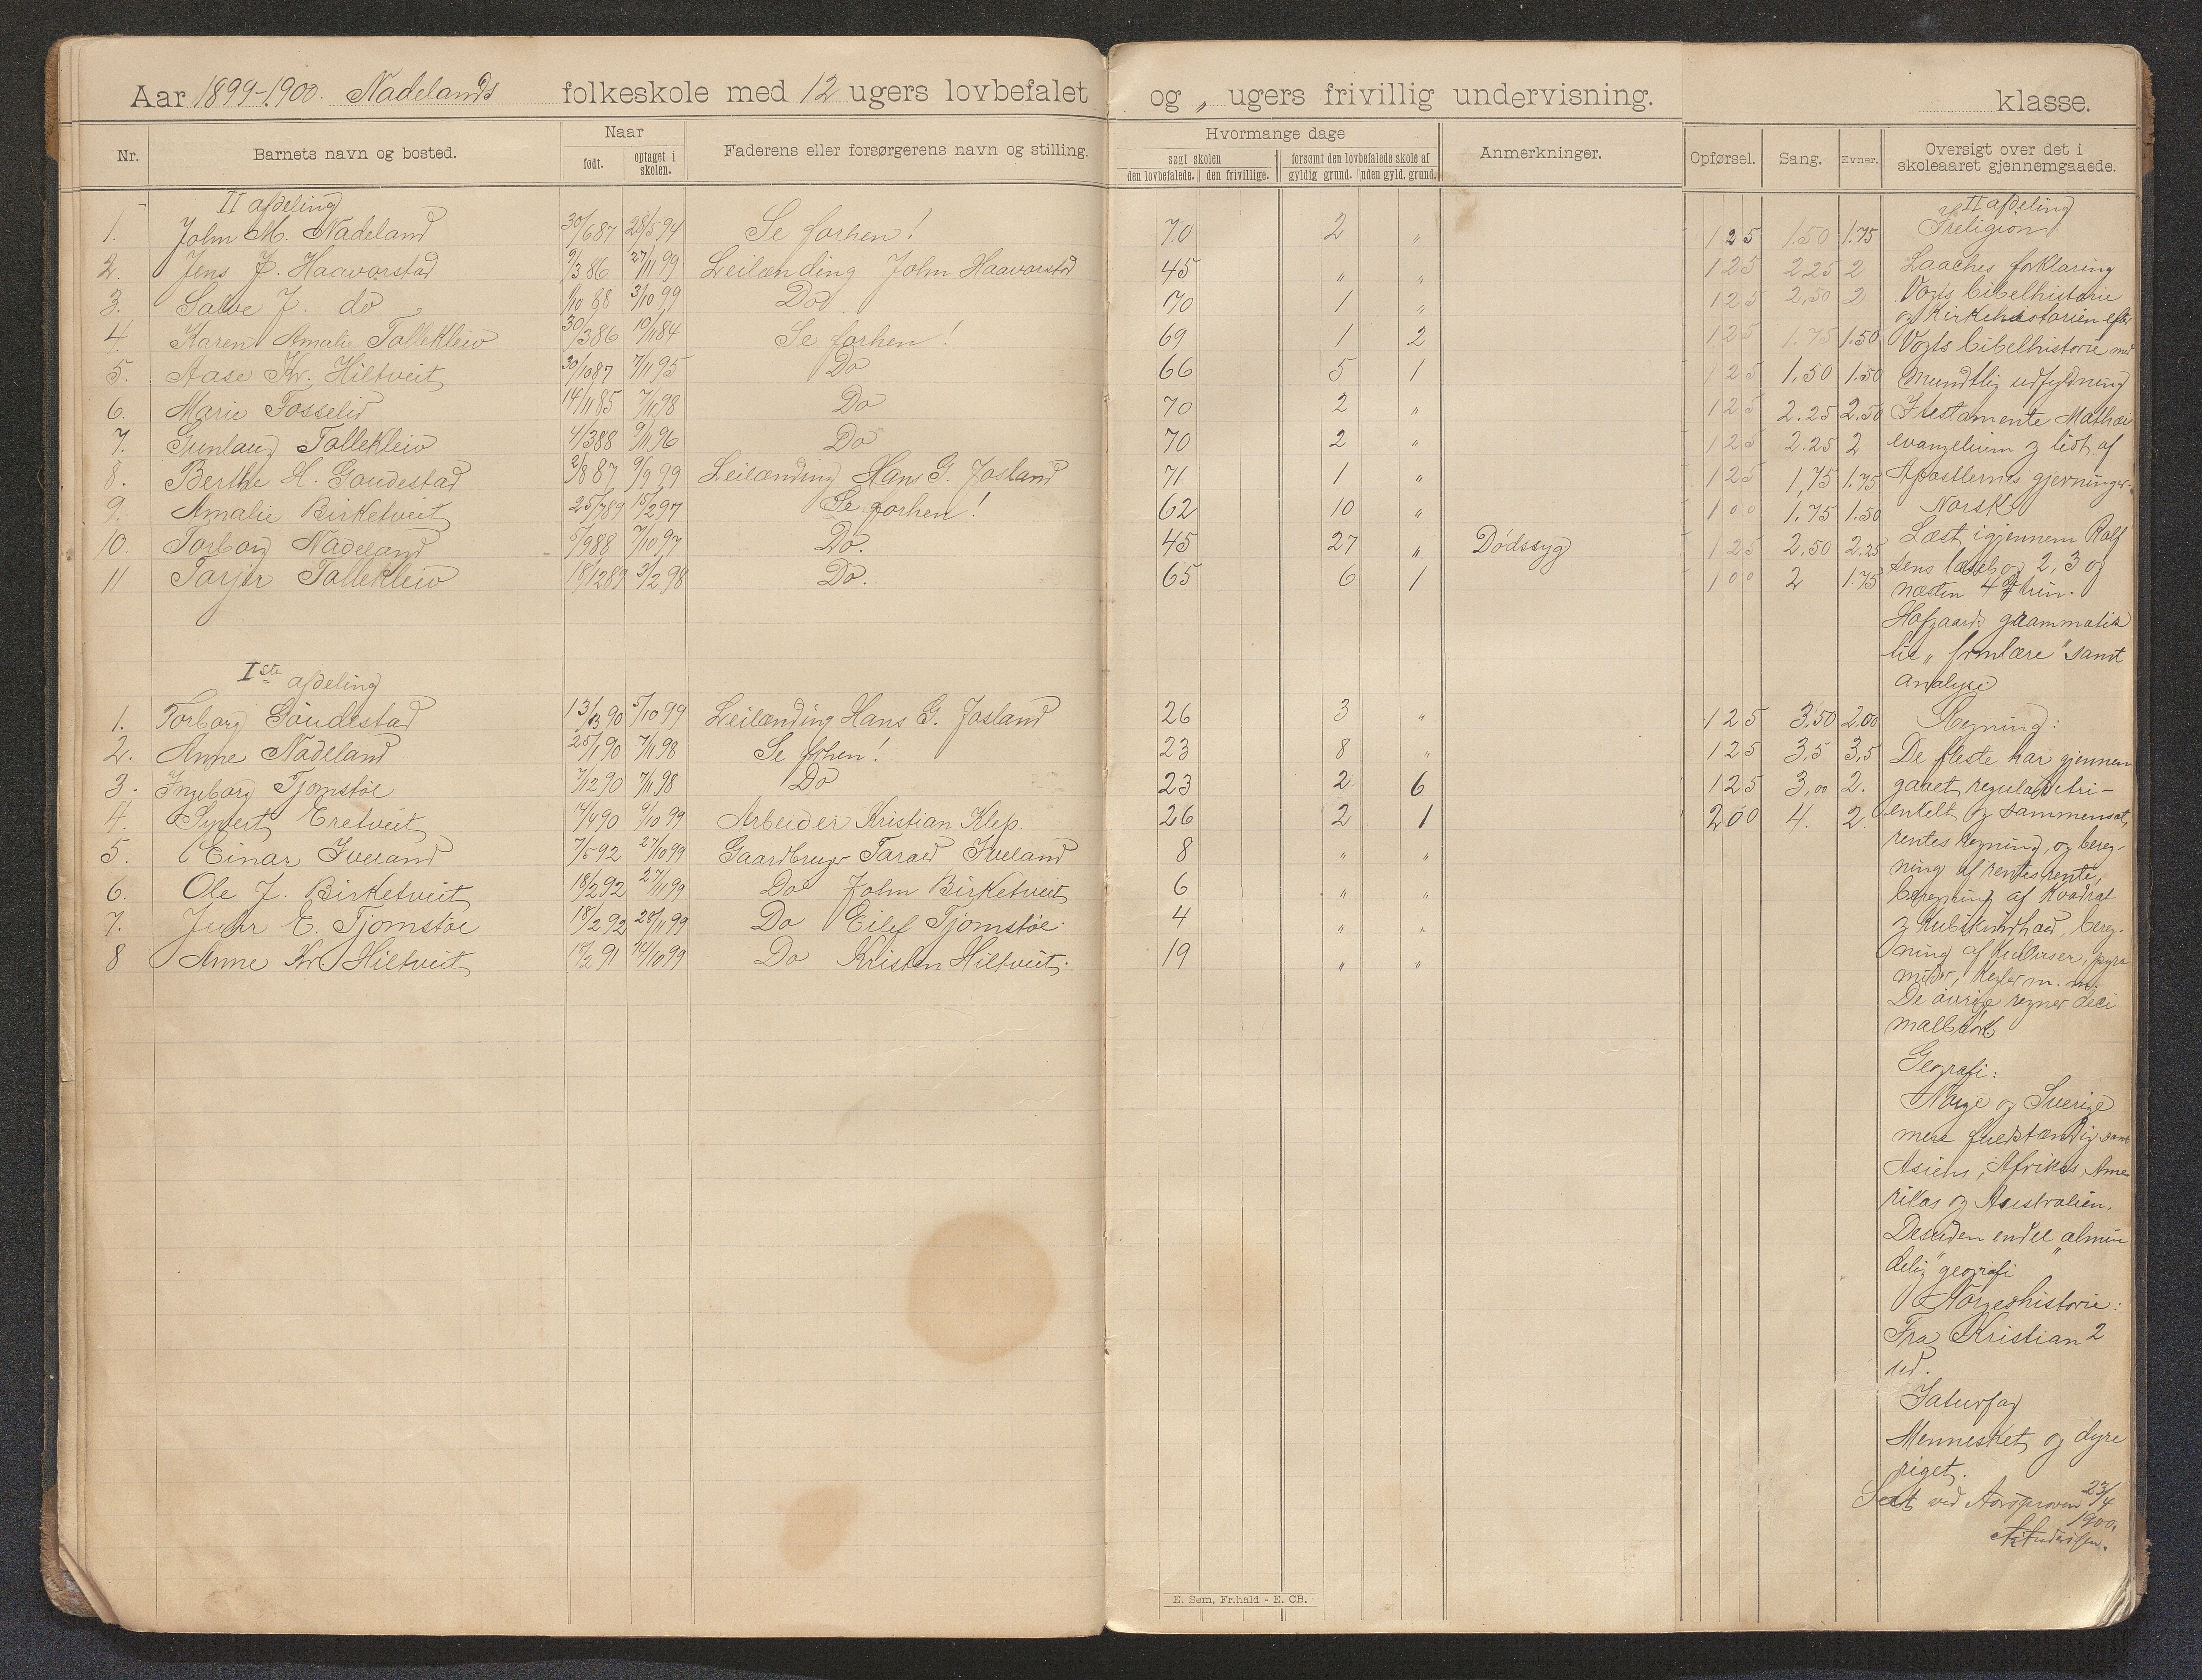 Aar 1899-1900. Nadelands folkeskole med 12 ugers lovbefalet og „ ugers frivillig undervisning. klasse.
Nr. Barnets navn og bosted. Naar født. optaget i skolen. Faderens eller forsørgerens navn og stilling. Hvormange dage søgt skolen den lovbefalede. den frivillige. forsømt den lovbefalede skole af gyldig grund. uden gyld. grund. Anmerkninger. Opførsel. Sang. Evner. Oversigt over det i skoleaaret gjennemgaaede.
II afdeling
1. John M. Nadeland 30/6 87 28/5 94 Se forhen! 70 2 „ 1 2 5 1.50 1.75
2. Jens J. Haavorstad 9/3 86 27/11 99 Leilænding John Haavorstad 45 „ „ 1 2 5 2.25 2
3. Salve J. do 1/10 88 3/10 99 Do 70 1 „ 1 2 5 2,50 2
4. Karen Amalie Tallekleiv 30/3 86 10/11 84 Se forhen! 69 1 2 1 2 5 1.75 1.50
5. Aase Kr. Hiltveit 30/10 87 7/11 95 Do 66 5 1 1 2 5 1,50 1.50
6. Marie Fosselid 14/11 85 7/11 98 Do 70 2 „ 1 2 5 2.25 2.50
7. Gunlaug Tallekleiv 4/3 88 9/11 96 Do 70 2 „ 1 2 5 2.25 2
8. Berthe H. Goudestad 2/8 87 9/9 99 Leilænding Hans G. Josland 71 1 „ 1 2 5 1,75 1.75
9. Amalie Birketveit 25/7 89 15/2 97 Se forhen! 62 10 „ 1 0 0 1,75 1.50
10. Torborg Nadeland 5/9 88 7/10 97 Do. 45 27 „ Dødssyg 1 2 5 2,50 2.25
11 Tarjer Tallekleiv 18/12 89 3/2 98 Do. 65 6 1 1 0 0 2 1.75
Iste afdeling
1. Torborg Goudestad 13/3 90 5/10 99 Leilænding Hans G. Josland 26 3 „ 1 2 5 3,50 2,00
2. Anne Nadeland 25/1 90 7/11 98 Se forhen! 23 8 „ 1 2 5 3,5 3,5
3. Ingeborg Tjomstøe 7/12 90 7/11 98 Do 23 2 6 1 2 5 3,00 2.
4. Syvert Eretveit 14/4 90 9/10 99 Arbeider Kristian Klep. 26 2 1 2 0 0 4. 2.
5. Einar Iveland 7/5 92 27/10 99 Gaardbruger Tarald Iveland 8 „ „
6. Ole J. Birketveit 18/2 92 27/11 99 Do John Birketveit 6 „ „
7. Juhr E. Tjomstøe 18/2 92 28/11 99 Do Eilef Tjomstøe. 4 „ „
8 Anne Kr. Hiltveit 18/2 91 14/10 99 Do Kristen Hiltveit. 19 „ „
II afdeling
I religion:
Laaches forklaring
Vogts bibelhistorie
og Kirkehistorien efter
Vogts bibelhistorie med
mundtlig udfyldning
I testamente Mathæi
evangelium og lidt af
Apostlernes gjerninger.
Norsk
Læst igjennem Rolf
sens læseb og 2, 3 og
næsten 4de trin.
Hofgaards grammatik
til „formlære" samt
analyse
Regning:
De fleste har gjennem
gaaet regula de tri –
enkelt og sammensat,
rentes regning, og bereg-
ning af rentesrente,
beregning af Kvadrat
og Kubikindhold, bereg-
ning af Kuber, pyra
mider, Kegler m. m.
De øvrige regner deci
malbrøk
Gegrafi:
Norge og Sverige
mere fuldstændig samt
Asiens, Afrikas, Ame
rikas og Australien.
Desuden endel „almin
delig" geografi
Norgeshistorie:
Fra Kristian 2
ud.
Naturfag
Mennesket og dyre
riget.
Seet ved Aarsprøven 23/4
1900.
E. Sem, Fr.hald - E. CB.